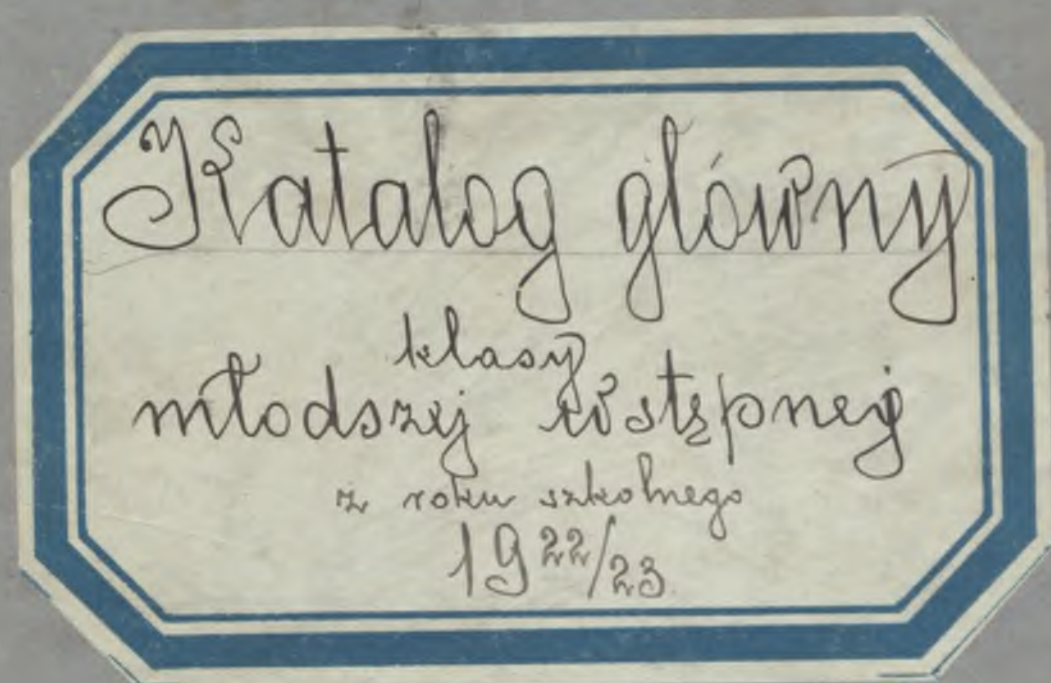 Katalog główny
klasy
młodszej wstępnej
z roku szkolnego
1922/23